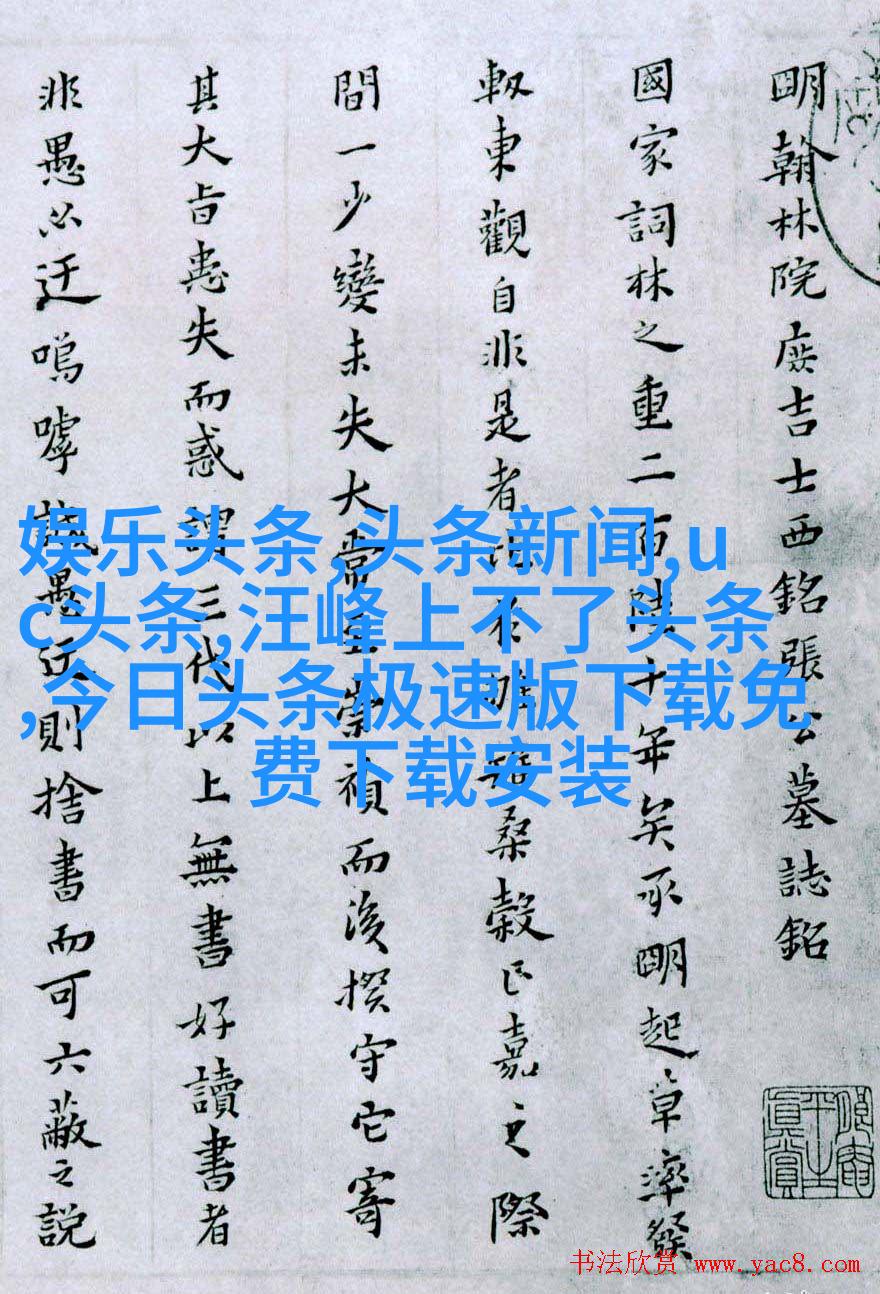 明翰林院庶吉士西銘張公墓誌銘
國家詞林之重二百陸十年矣承明起草率發
軔東觀自非是者
桑穀正嘉之際
間一少變未失大常
禎而後揆守它寄
其大旨悉失而惑謂三代以上無書好讀書者
非愚必迂嗚嘑誠愚迂則捨書而可六蔽之說
娱乐头条,头条新闻,u
c头条,汪峰上不了头条
,今日头条极速版下载免
费下载安装
书法欣赏 www.yac8.com